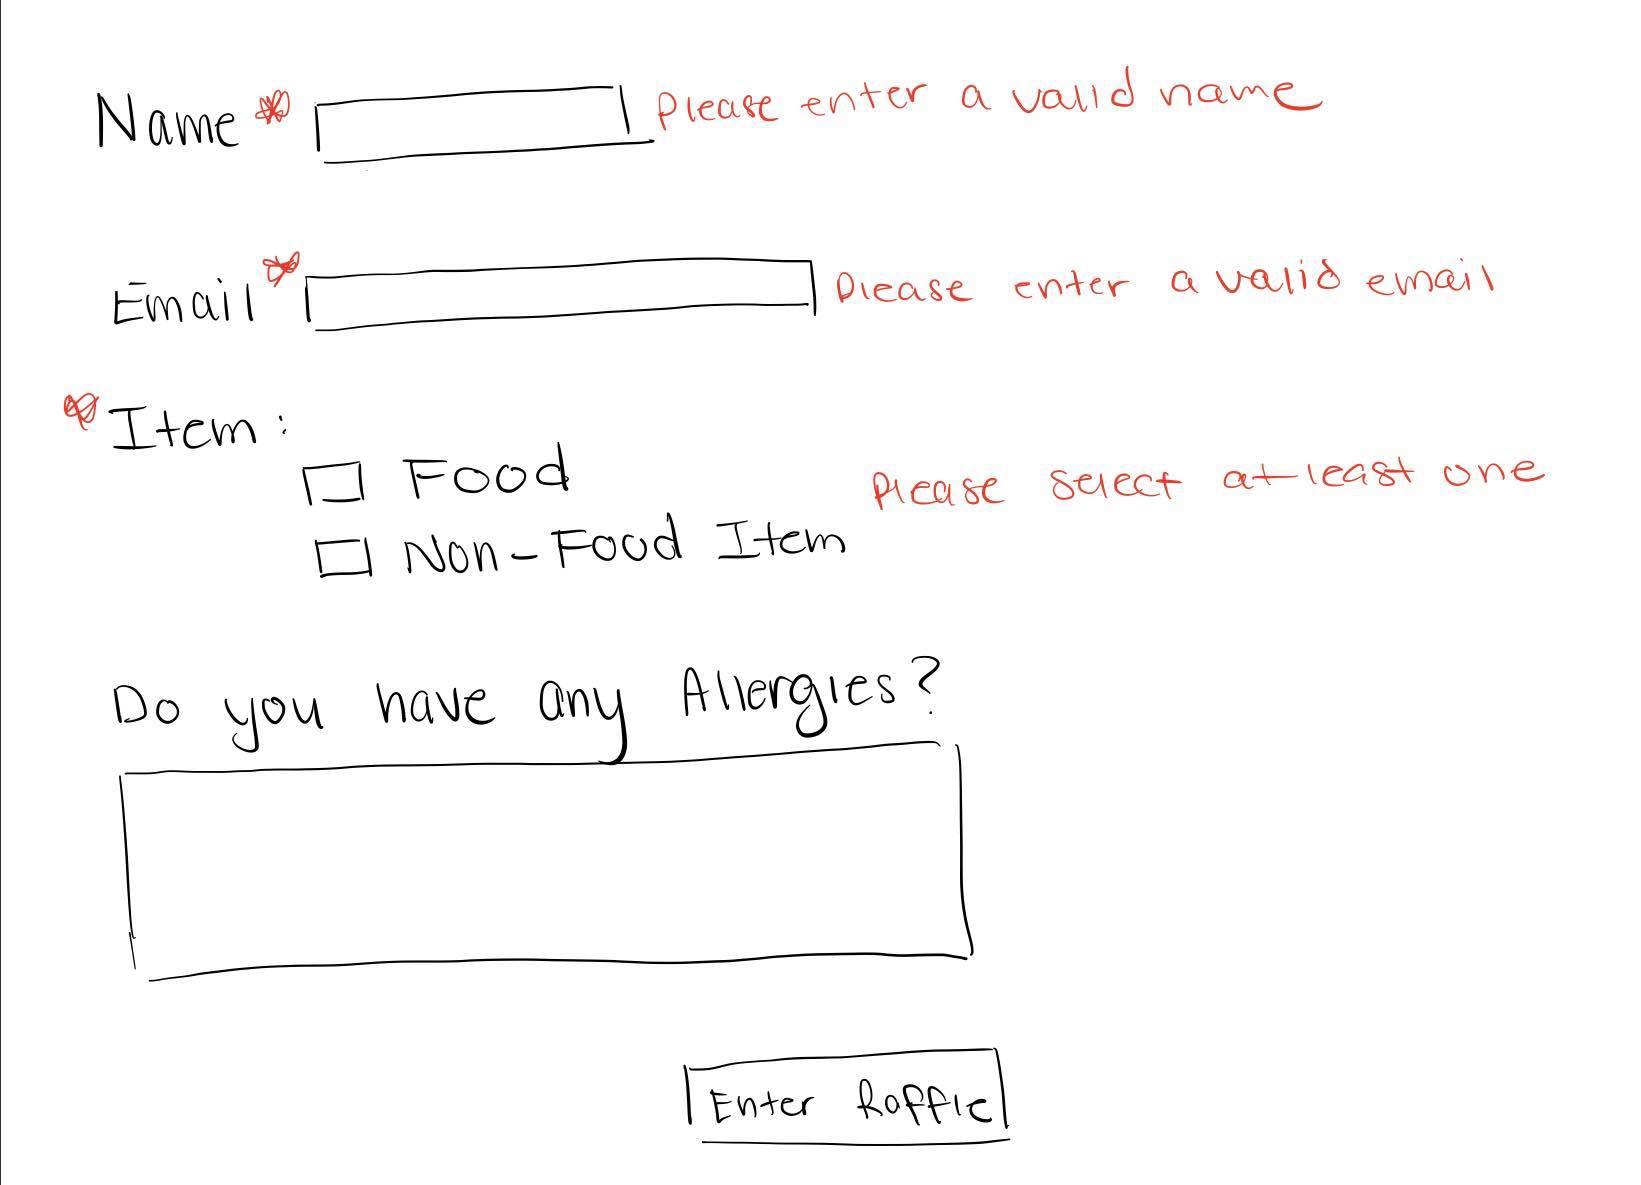 Name * Please enter a valid name
Email * Please enter a valid email
* Item:
Food
Please select at least one
Non-Food Item
Do you have any Allergies?
Enter Raffle